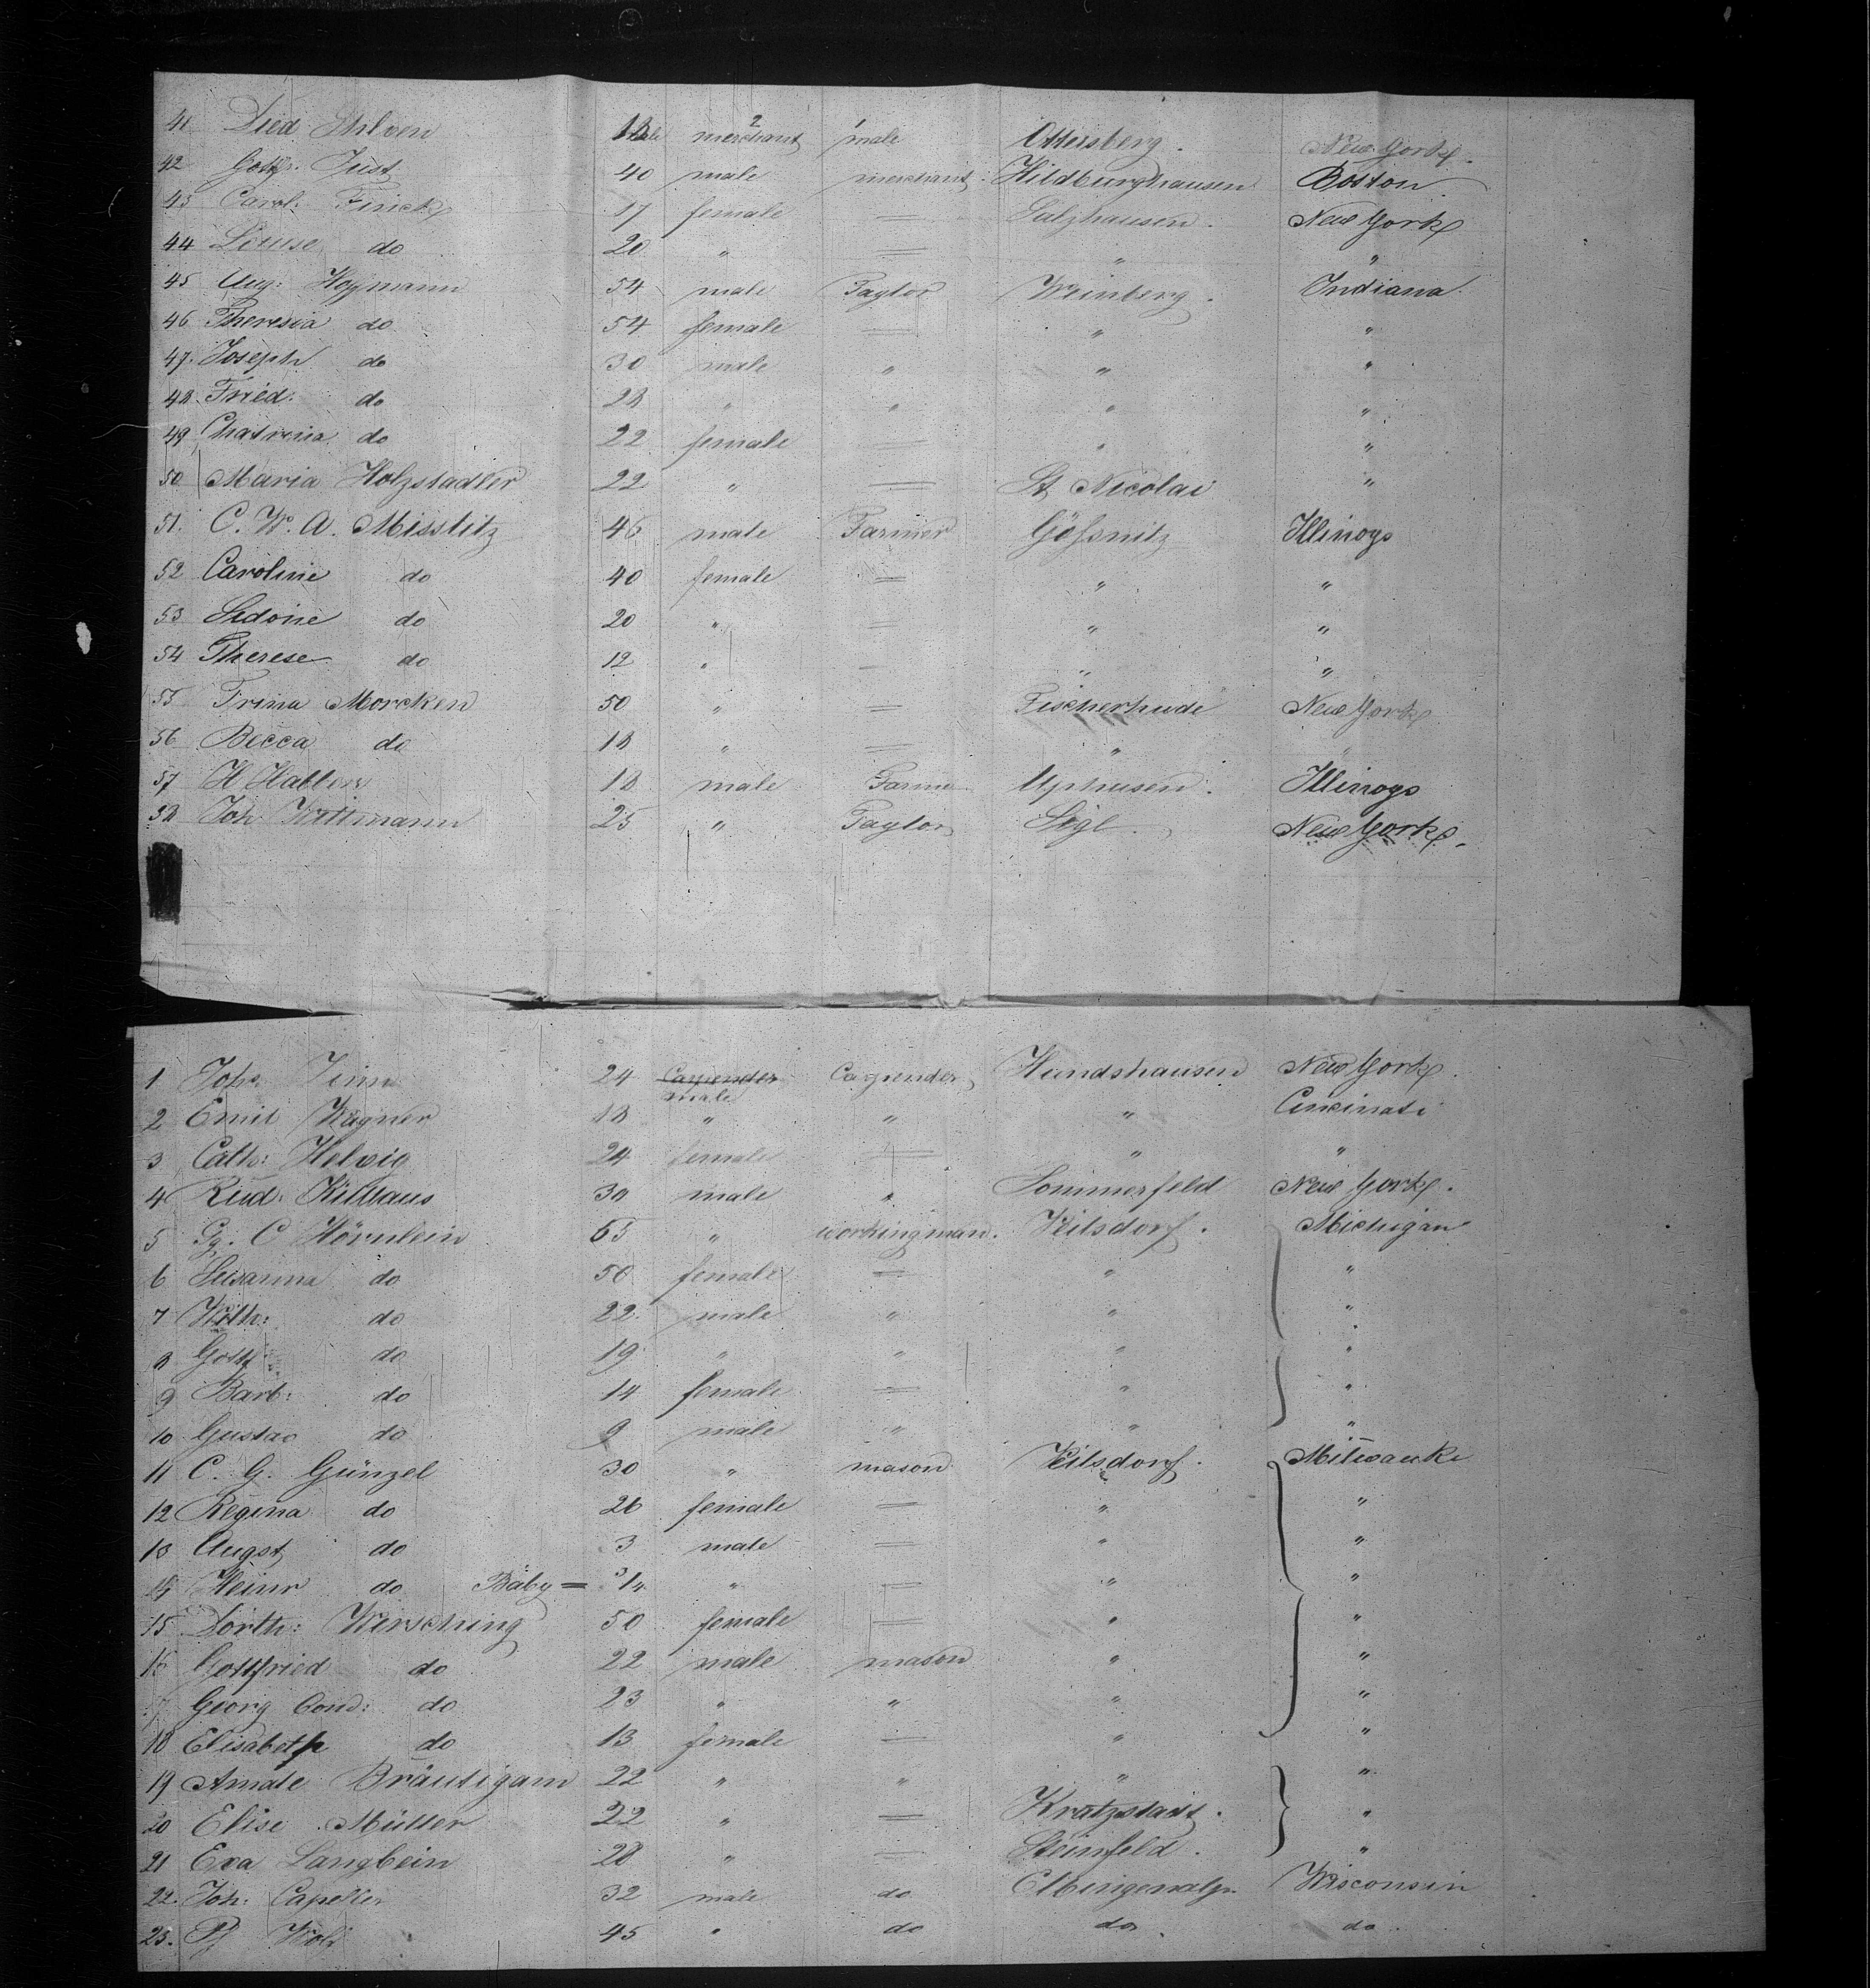 41 Died Ahlven 18 merchant 2 male 1 Ottersberg. New York.
42 Gottfr. Just 40 male merchant. Hildburghausen Boston.
43 Carol. Finck 17 female = Sulzhausen. New York
44 Louise do 20 " = " "
45 Aug: Hoymann 54 male Taylor Weinberg. Indiana.
46 Theresia do 54 female = " "
47. Joseph do 30 male " " "
48. Fried. do 28 " " " "
49 Chatrina do 22 female = " "
50 Maria Holzstadler 22 " = St Nicolai "
51. C. W. A. Misslitz 46 male Farmer Gößnitz Illinoys
52 Caroline do 40 female = " "
53 Sidonie do 20 " = " "
54 Therese do 12 " = " "
55 Trina Morcken 50 " = Fischerhude New York
56 Becca do 18 " = " "
57 H 18 male Farmer Uphusen. Illinoys
58 Joh 25 " Taylor Sögl. New York.
1 Joh. 24 Capender male Capender Hundshausen New York.
2 Emil Wagner 18 " " " Cincinati
3 Cath: Helvig 24 female = " "
4 Rud: 30 male " Sommerfeld New York.
5 Gg. C Hörnlein 65 " workingman. Veilsdorf. Michigan
6 Susanna do 50 female = " "
7 do 22 male " " "
8 Gottf: do 19 " " " "
9 Barb: do 14 female = " "
10 Gustav do 9 male " " "
11 C. G. Günzel 30 " mason Veilsdorf. Milwauke
12 Regina do 26 female = " "
13 Augst do 3 male = " "
14 Heinr do Bäby = 3/4 " = " "
15 Dorth: Wersching 50 female = " "
16 Gottfried do 22 male mason " "
17 Georg Cond: do 23 " " " "
18 Elisabeth do 13 female = " "
19 Amale Bräutigam 22 " " " "
20 Elise Müller 22 " = Kratzstadt. "
21 Eva Langbein 28 " = Steinfeld. "
22. Joh. Capeller 32 male do Elbingenalp. Wisconsin
23. 45 " do do. do.